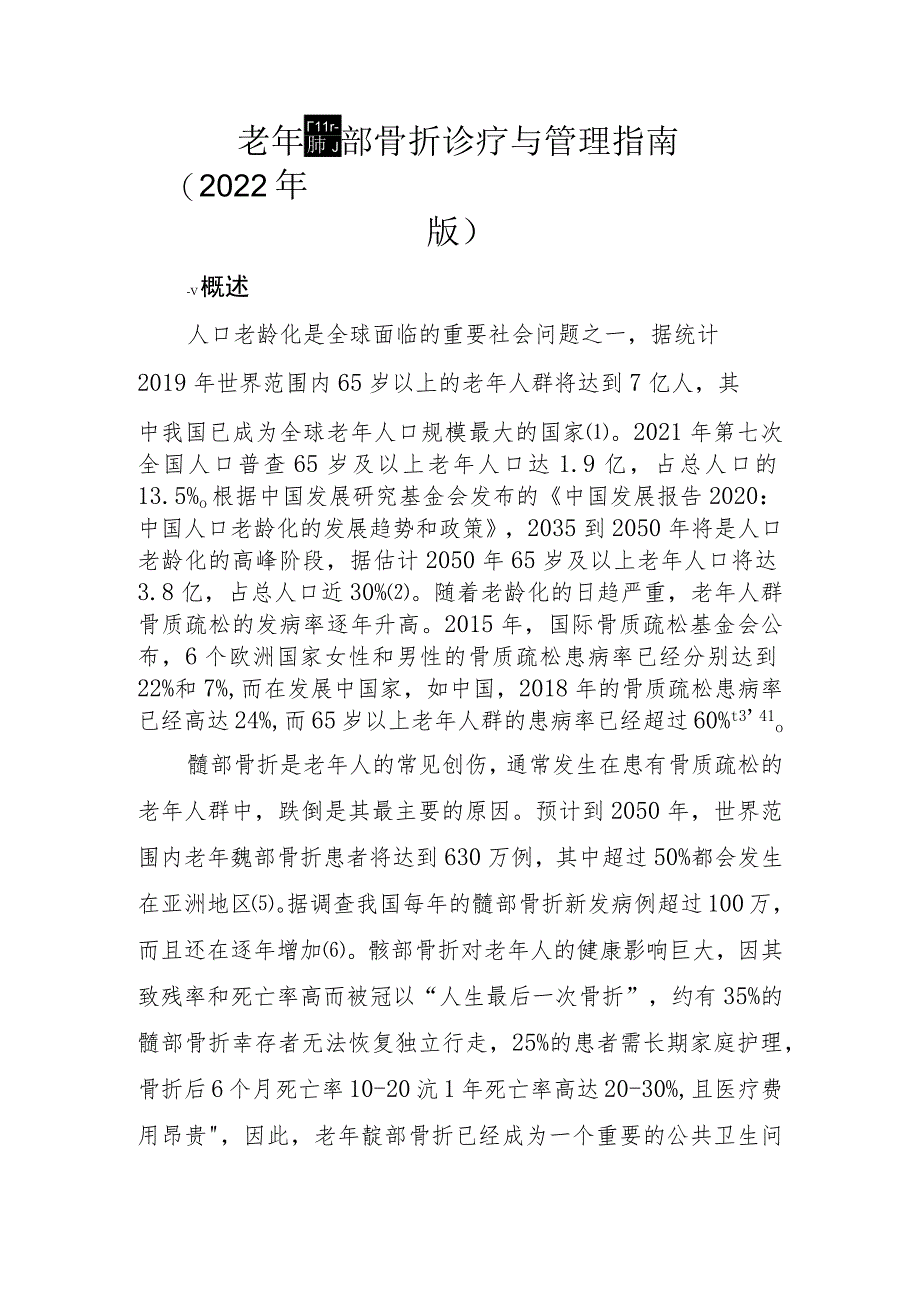 老年Γ11r-肺 J部骨折诊疗与管理指南
（2022 年
版）
-v 概述
人口老龄化是全球面临的重要社会问题之一，据统计
2019 年世界范围内 65 岁以上的老年人群将达到 7 亿人，其
中我国已成为全球老年人口规模最大的国家⑴。2021 年第七次
全国人口普查 65 岁及以上老年人口达 1.9 亿，占总人口的
13.5%o 根据中国发展研究基金会发布的《中国发展报告 2020：
中国人口老龄化的发展趋势和政策》，2035 到 2050 年将是人口
老龄化的高峰阶段，据估计 2050 年 65 岁及以上老年人口将达
3.8 亿，占总人口近 30%⑵。随着老龄化的日趋严重，老年人群
骨质疏松的发病率逐年升高。2015 年，国际骨质疏松基金会公
布，6 个欧洲国家女性和男性的骨质疏松患病率已经分别达到
22%和 7%,而在发展中国家，如中国，2018 年的骨质疏松患病率
已经高达 24%,而 65 岁以上老年人群的患病率已经超过 60%t3’41o
髓部骨折是老年人的常见创伤，通常发生在患有骨质疏松的
老年人群中，跌倒是其最主要的原因。预计到 2050 年，世界范
围内老年魏部骨折患者将达到 630 万例，其中超过 50%都会发生
在亚洲地区⑸。据调查我国每年的髓部骨折新发病例超过 100 万，
而且还在逐年增加⑹。骸部骨折对老年人的健康影响巨大，因其
致残率和死亡率高而被冠以“人生最后一次骨折”，约有 35%的
髓部骨折幸存者无法恢复独立行走，25%的患者需长期家庭护理，
骨折后 6 个月死亡率 10-20 沆 1 年死亡率高达 20-30%,且医疗费
用昂贵"，因此，老年靛部骨折已经成为一个重要的公共卫生问